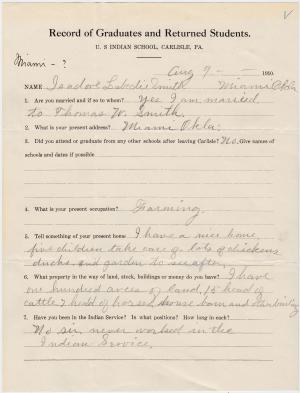 Record of Graduates and Returned Students.
U. S INDIAN SCHOOL, CARLISLE, PA.
Miami - ?
Aug 9 - 1910.
NAME Isadore Labedie Smith Miami Okla
1. Are you married and if so to whom? Yes I am married
to Thomas W. Smith.
2. What is your present address? Miami Okla.
3. Did you attend or graduate from any other schools after leaving Carlisle? No. Give names of
schools and dates if possible
4. What is your present occupation? Farming.
5. Tell something of your present home I have a nice home,
five children take care of lots of chickens
ducks and garden to see after.
6. What property in the way of land, stock, buildings or money do you have? I have
one hundred acres of land, 15 head of
cattle 7 head of horses, house barn and other buildings
7. Have you been in the Indian Service? In what positions? How long in each?
No sir, never worked in the
Indian Service.